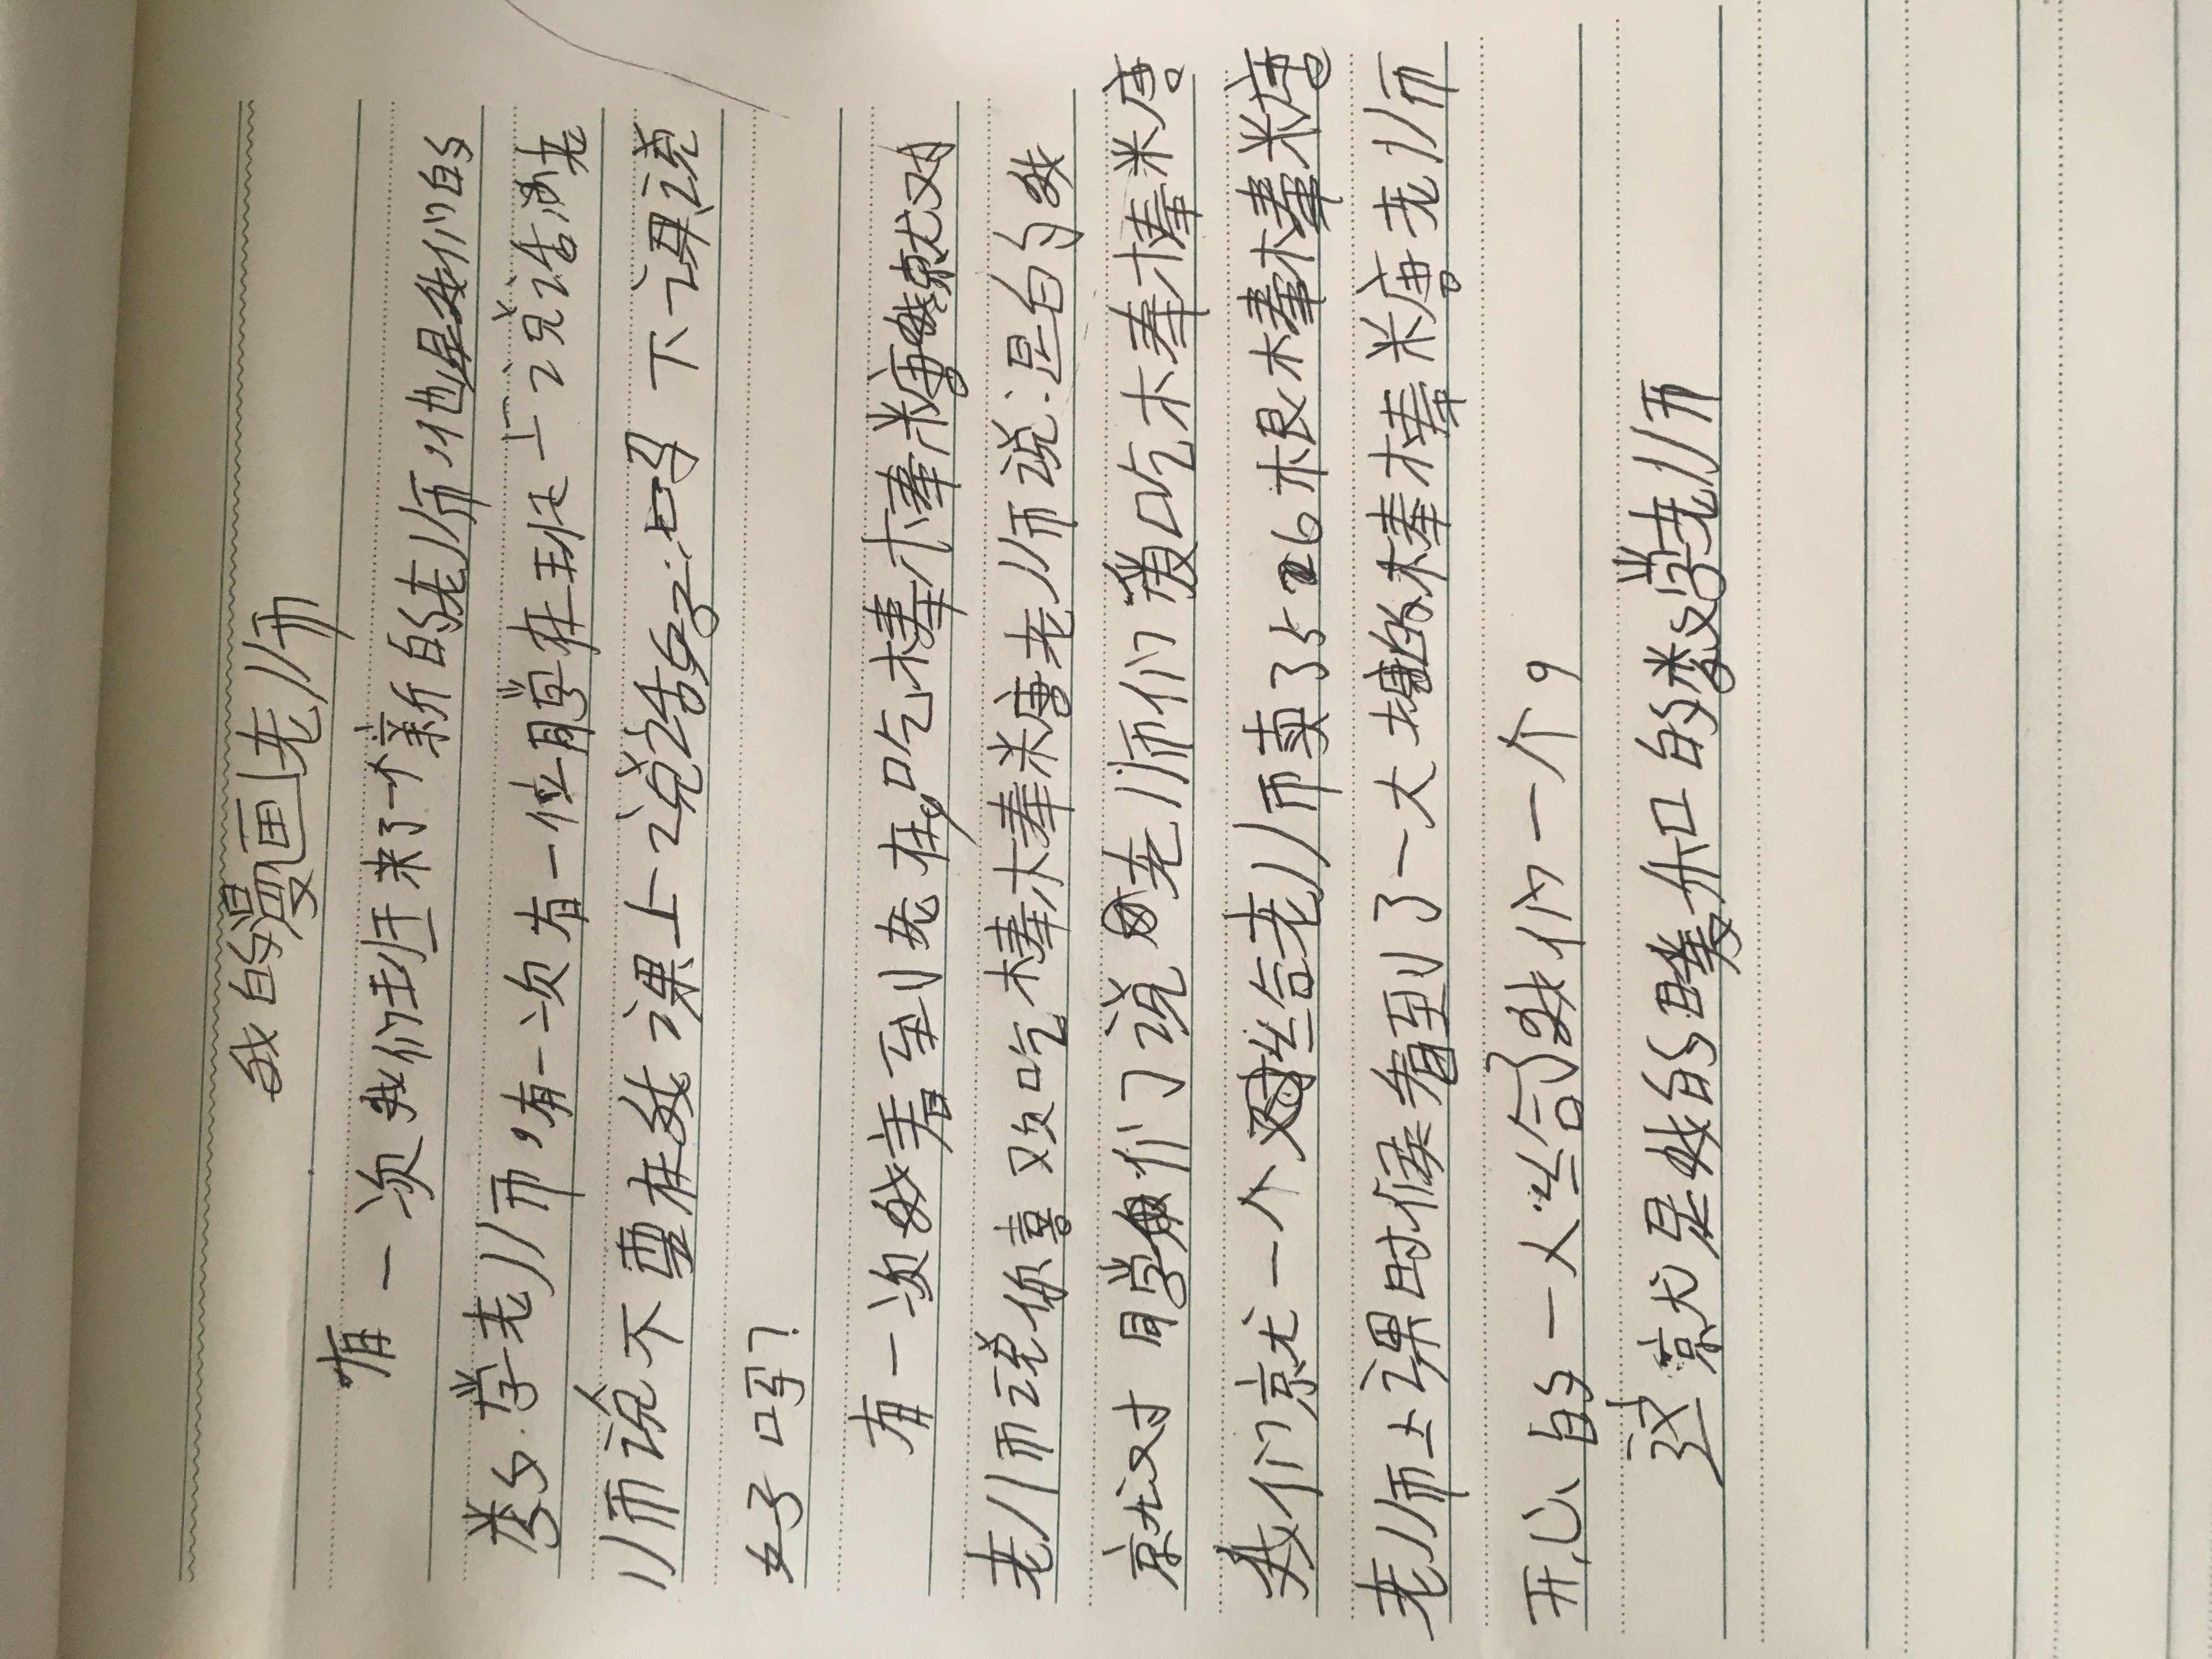 我的漫画老师
有一次我们班来了个新的老师,他是我们的
数学老师,有一次有一位同学在班上说话老
师说不要在我课上说话好吗下课说
好吗?
有一次我看到老在吃棒棒糖我就对
老师说你喜欢吃棒棒糖老师说:是的我
就对同学们说老师们爱吃棒棒糖
我们就一个对给老师卖了526根棒棒糖
老师上课时候看到了一大堆的棒棒糖老师
开心的一人给了我们一个。
这就是我的和的数学老师